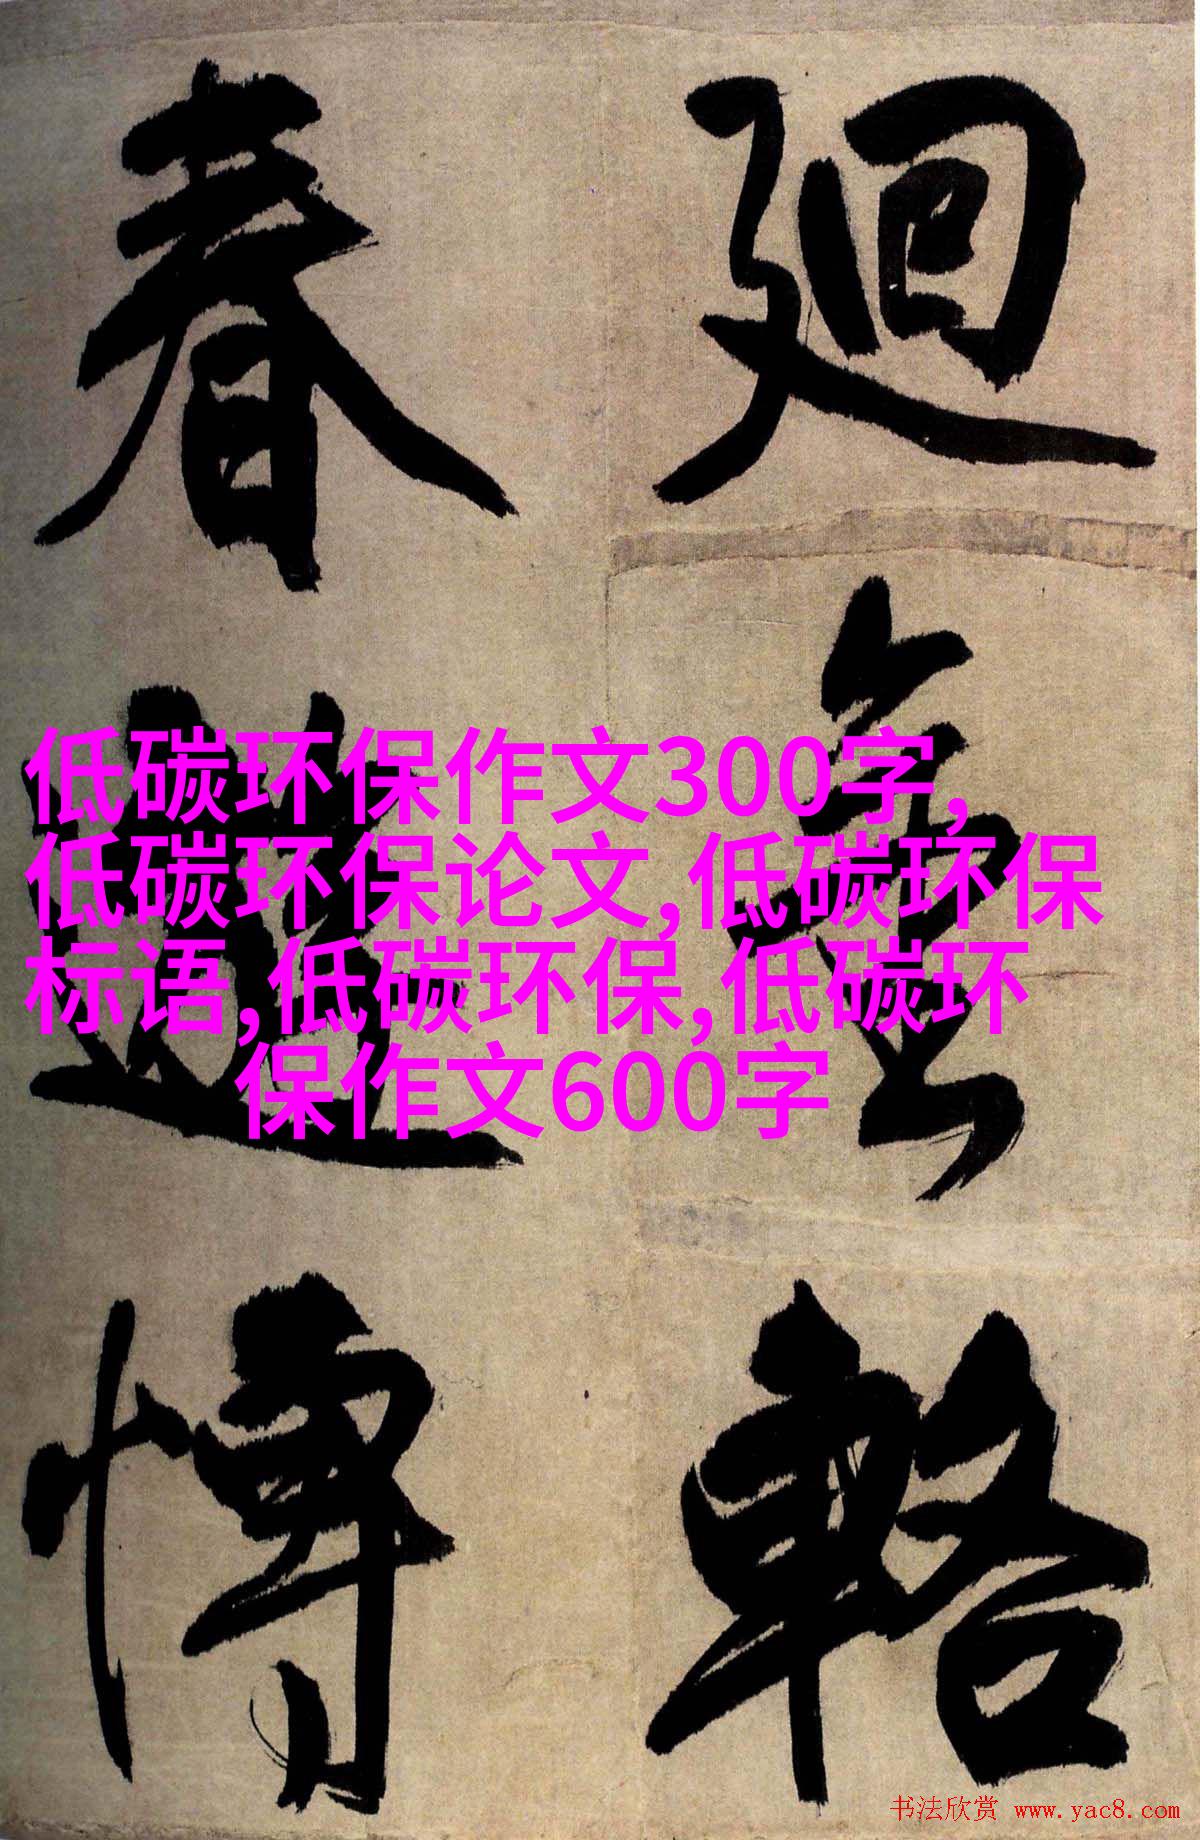 廻金輅
春遊博
低碳环保作文300字,
低碳环保论文,低碳环保
标语,低碳环保,低碳环
保作文600字
书法欣赏 www.yac8.com